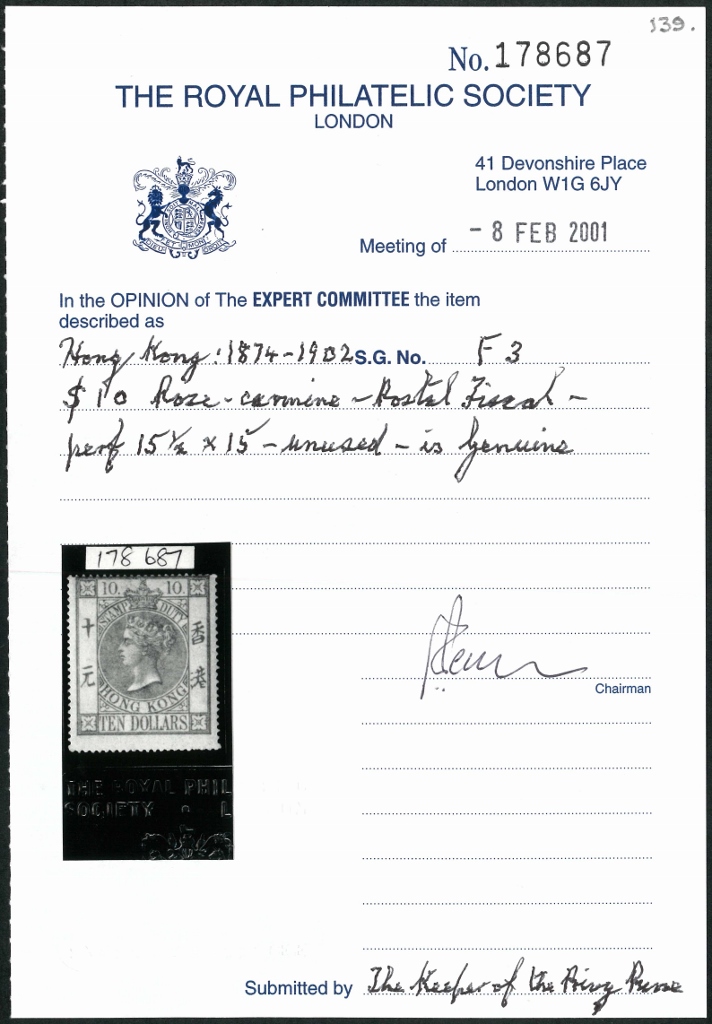 139.
No. 178687
THE ROYAL PHILATELIC SOCIETY
LONDON
41 Devonshire Place
London W1G 6JY
Meeting of - 8 FEB 2001
In the OPINION of The EXPERT COMMITTEE the item
described as
Hong Kong: 1874-1902 S.G. No. F 3
$10 Rose-carmine - Postal Fiscal -
perf 15½ x 15 - unused - is genuine
178 687
10. 10.
STAMP DUTY
十元
香港
HONG KONG
TEN DOLLARS
THE ROYAL PHIL
SOCIETY L
Chairman
Submitted by The Keeper of the Privy Purse